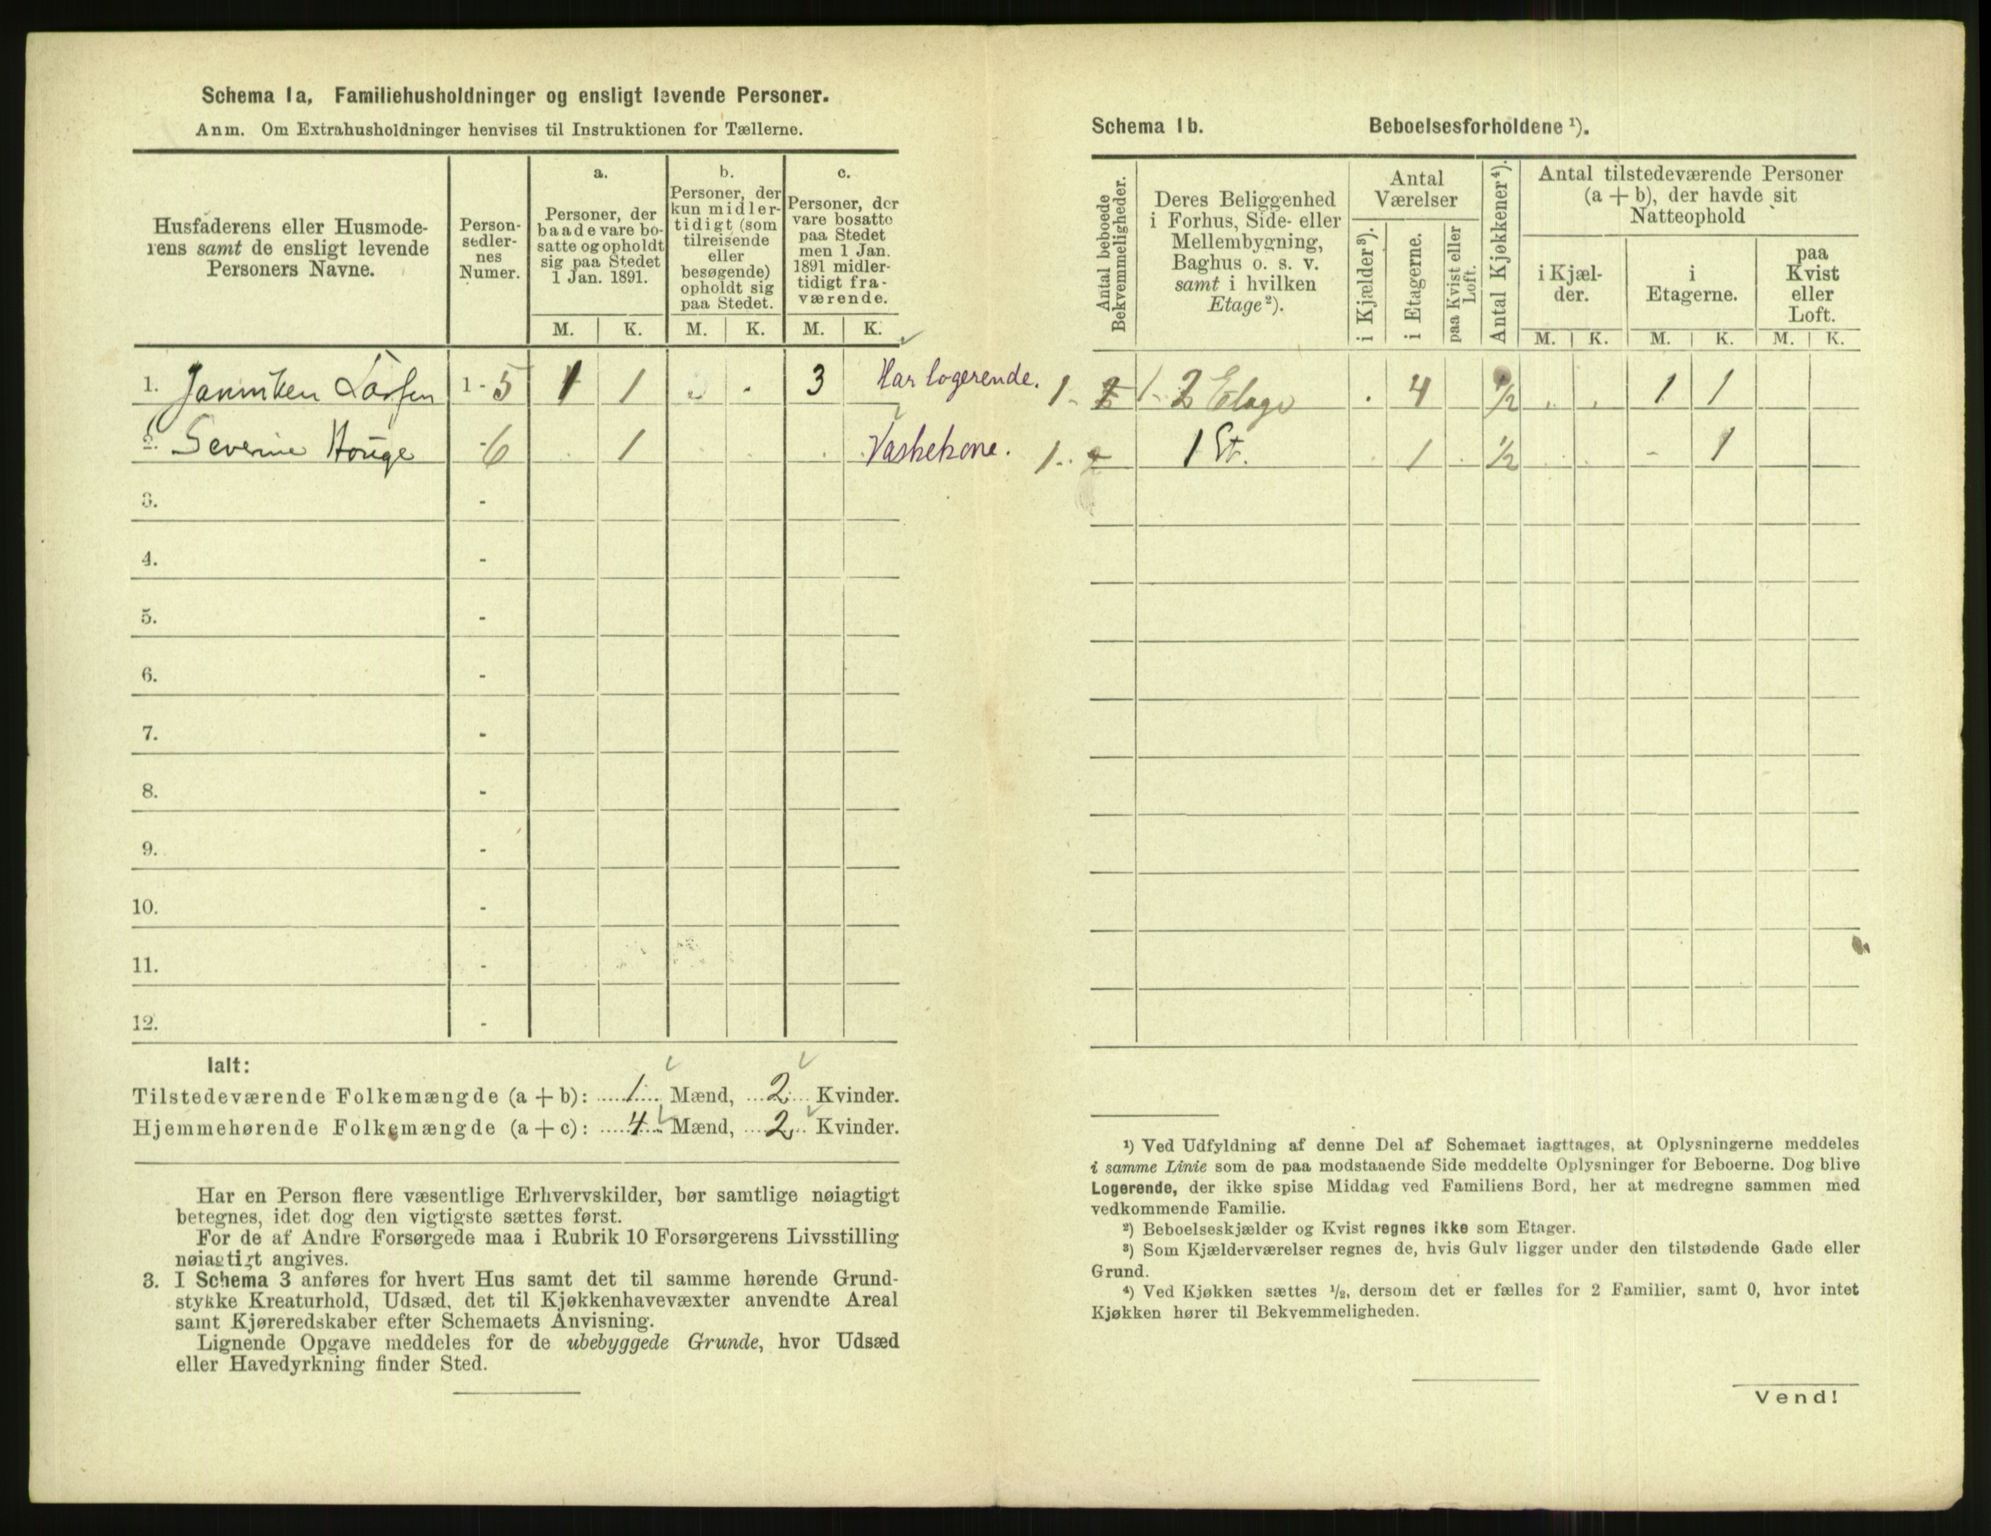 Schema 1a, Familiehusholdninger og ensligt levende Personer.
Anm. Om Extrahusholdninger henvises til Instruktionen for Tællerne.
Husfaderens eller Husmode-
rens samt de ensligt levende
Personers Navne.
Person-
sedler-
nes
Numer.
a.
Personer, der
baade vare bo-
satte og opholdt
sig paa Stedet
1 Jan. 1891.
b.
Personer, der
kun midler-
tidigt (som
tilreisende
eller
besøgende)
opholdt sig
paa Stedet.
c.
Personer, der
vare bosatte
paa Stedet
men 1 Jan.
1891 midler-
tidigt fra-
værende.
M. K. M. K. M. K.
1. Janniken Larsen 1 - 5 1 1 - 3 Har logerende.
2. Severine Houge - 6 1 Vaskekone.
3. -
4. -
5. -
6. -
7. -
8. -
9. -
10. -
11. -
12. -
Ialt:
Tilstedeværende Folkemængde (a + b): 1 Mænd, 2 Kvinder.
Hjemmehørende Folkemængde (a + c): 4 Mænd, 2 Kvinder.
Har en Person flere væsentlige Erhvervskilder, bør samtlige nøiagtigt
betegnes, idet dog den vigtigste sættes først.
For de af Andre Forsørgede maa i Rubrik 10 Forsørgerens Livsstilling
nøiagtigt angives.
3. I Schema 3 anføres for hvert Hus samt det til samme hørende Grund-
stykke Kreaturhold, Udsæd, det til Kjøkkenhavevæxter anvendte Areal
samt Kjøreredskaber efter Schemaets Anvisning.
Lignende Opgave meddeles for de ubebyggede Grunde, hvor Udsæd
eller Havedyrkning finder Sted.
Schema 1b. Beboelsesforholdene ¹).
Antal beboede
Bekvemmeligheder.
Deres Beliggenhed
i Forhus, Side- eller
Mellembygning,
Baghus o. s. v.
samt i hvilken
Etage²).
Antal
Værelser
i Kjælder³).
i Etagerne.
paa Kvist eller
Loft.
Antal Kjøkkener⁴).
Antal tilstedeværende Personer
(a + b), der havde sit
Natteophold
i Kjæl-
der.
i
Etagerne.
paa
Kvist
eller
Loft.
M. K. M. K. M. K.
1 - 2 1 - 2 Etage . 4 ½ . . 1 1
1 - 2 1 St. . 1 . ½ . . - 1
¹) Ved Udfyldning af denne Del af Schemaet iagttages, at Oplysningerne meddeles
i samme Linie som de paa modstaaende Side meddelte Oplysninger for Beboerne. Dog blive
Logerende, der ikke spise Middag ved Familiens Bord, her at medregne sammen med
vedkommende Familie.
²) Beboelseskjælder og Kvist regnes ikke som Etager.
³) Som Kjælderværelser regnes de, hvis Gulv ligger under den tilstødende Gade eller
Grund.
⁴) Ved Kjøkken sættes ½, dersom det er fælles for 2 Familier, samt 0, hvor intet
Kjøkken hører til Bekvemmeligheden.
Vend!